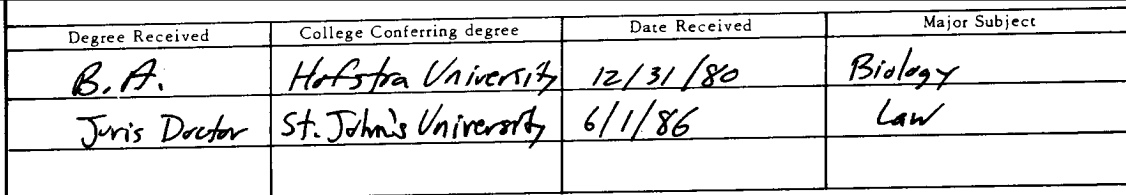 Degree Received College Conferring degree Date Received Major Subject
B.A. Hofstra University 12/31/80 Biology
Juris Doctor St. John's University 6/1/86 Law